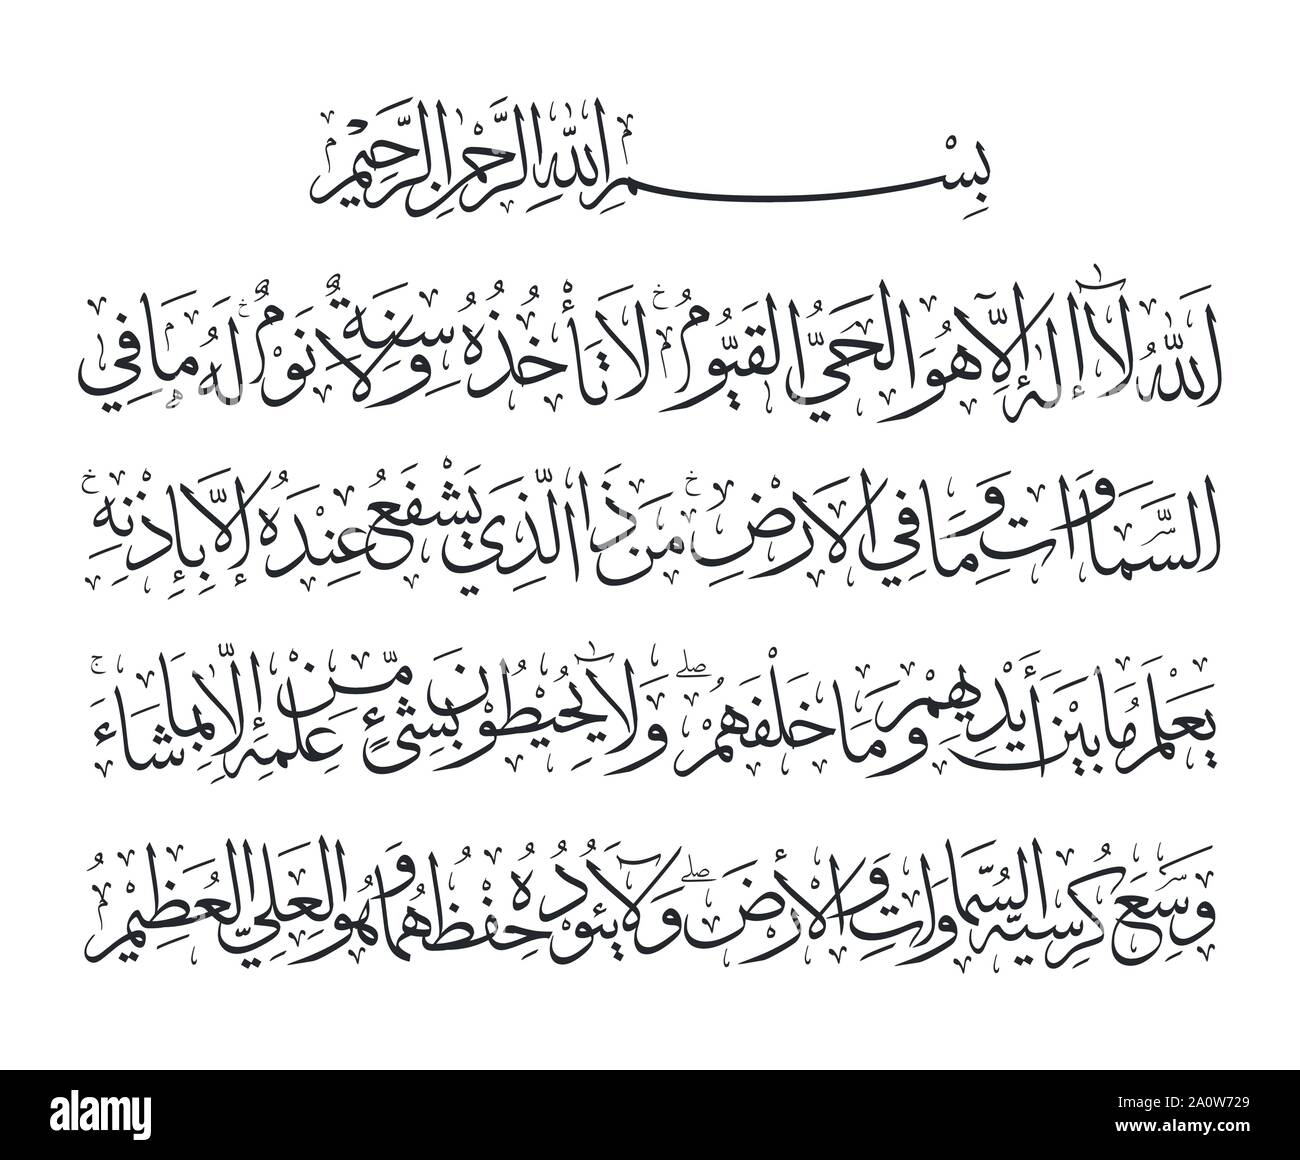 بِسْمِ اللّٰهِ الرَّحْمٰنِ الرَّحِيْمِ
اَللّٰهُ لَآ إِلٰهَ إِلَّا هُوَ الْحَيُّ الْقَيُّوْمُ لَا تَأْخُذُهٗ سِنَةٌ وَلَا نَوْمٌ لَهٗ مَا فِي
السَّمَاوَاتِ وَمَا فِي الْاَرْضِ مَنْ ذَا الَّذِي يَشْفَعُ عِنْدَهُ إِلَّا بِإِذْنِهِ
يَعْلَمُ مَا بَيْنَ أَيْدِيهِمْ وَمَا خَلْفَهُمْ وَلَا يُحِيْطُوْنَ بِشَيْءٍ مِّنْ عِلْمِهِ إِلَّا بِمَا شَاءَ
وَسِعَ كُرْسِيُّهُ السَّمَاوَاتِ وَالْأَرْضَ وَلَا يَئُوْدُهُ حِفْظُهُمَا وَهُوَ الْعَلِيُّ الْعَظِيْمُ
alamy
alamy
Image ID: 2A0W729
www.alamy.com